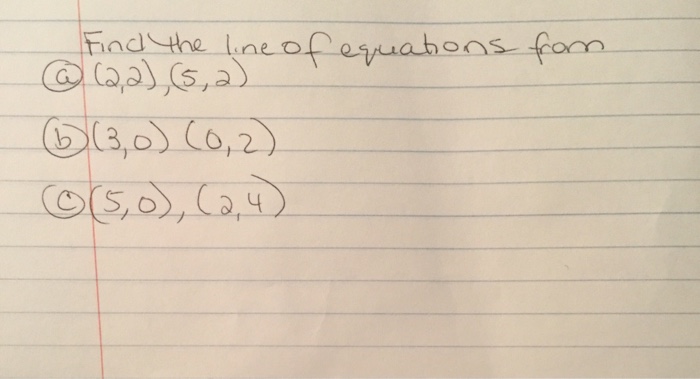 Find the line of equations from
(a) (2,2), (5,2)
(b) (3,0) (0,2)
(c) (5,0), (2,4)